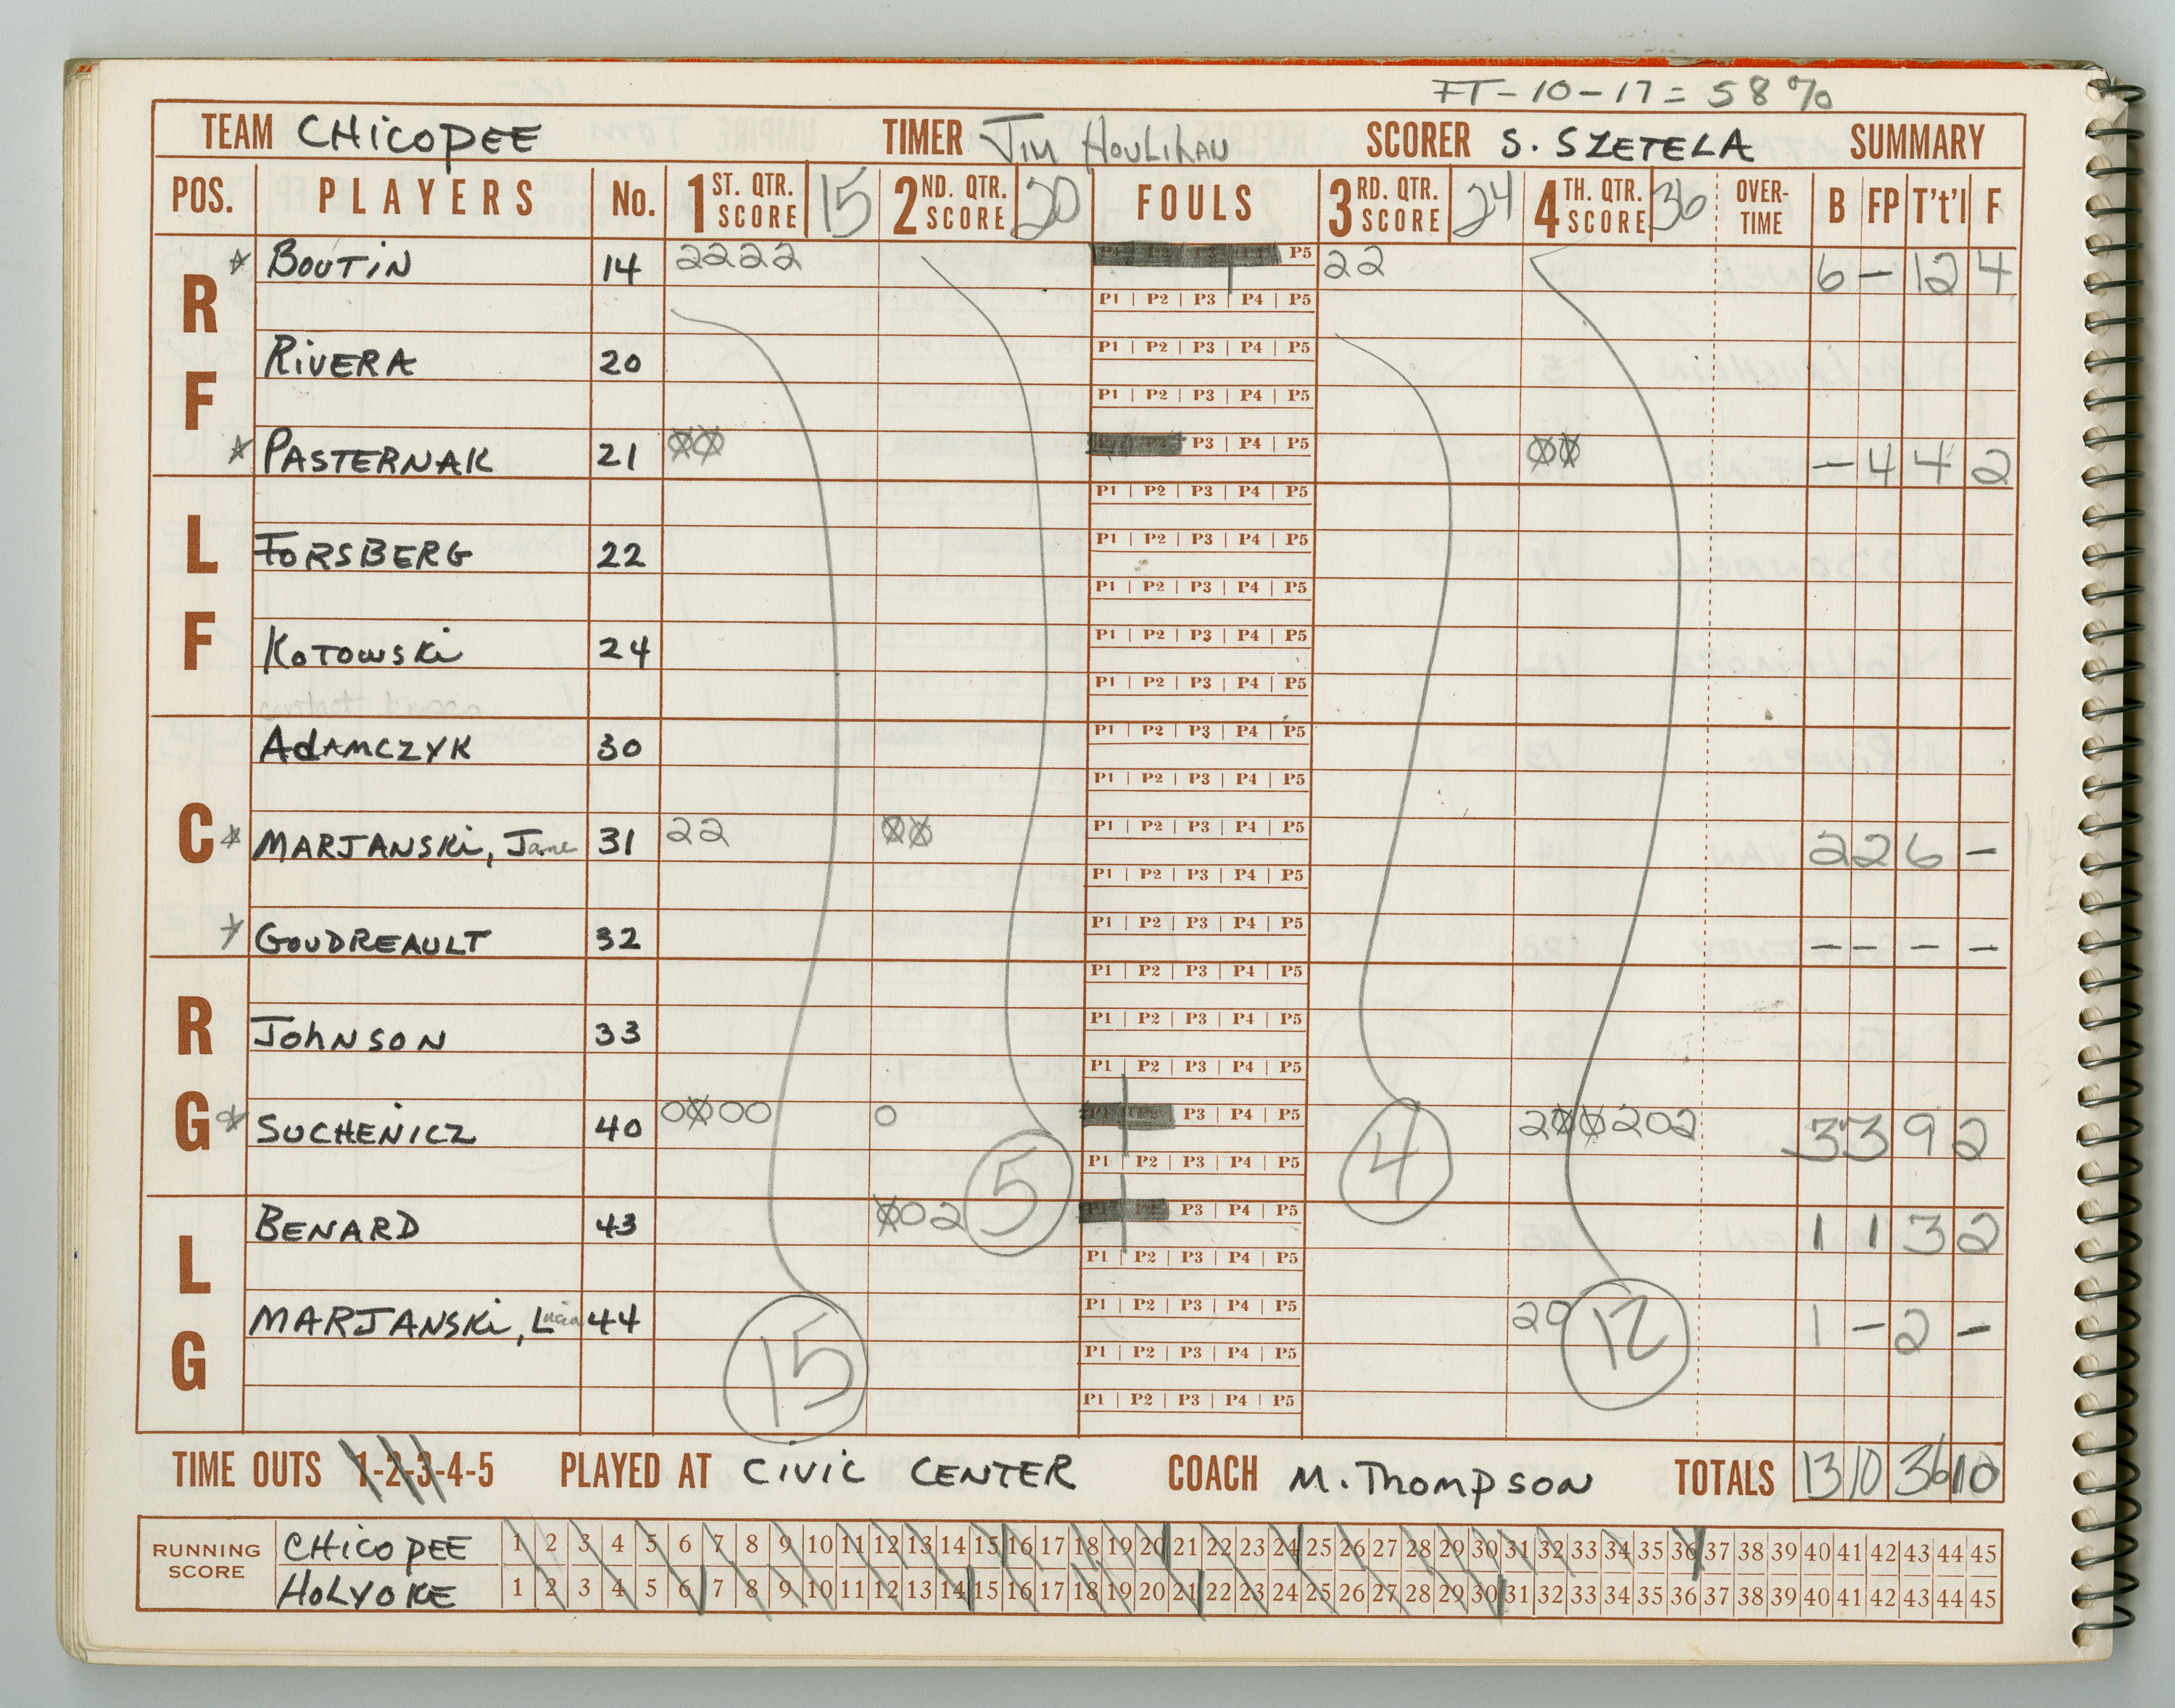 FT-10-17=58%
TEAM CHICOPEE TIMER Jim Houlihan SCORER S. SZETELA SUMMARY
POS. PLAYERS No. 1ST. QTR. SCORE 15 2ND. QTR. SCORE 20 FOULS 3RD. QTR. SCORE 24 4TH. QTR. SCORE 36 OVER-TIME B FP T't'l F
RF
* BOUTIN 14 2222 P5 22 6 - 12 4
P1 | P2 | P3 | P4 | P5
RIVERA 20 P1 | P2 | P3 | P4 | P5
P1 | P2 | P3 | P4 | P5
* PASTERNAK 21 P3 | P4 | P5 - 4 4 2
LF
P1 | P2 | P3 | P4 | P5
FORSBERG 22 P1 | P2 | P3 | P4 | P5
P1 | P2 | P3 | P4 | P5
KOTOWSKI 24 P1 | P2 | P3 | P4 | P5
P1 | P2 | P3 | P4 | P5
C
ADAMCZYK 30 P1 | P2 | P3 | P4 | P5
P1 | P2 | P3 | P4 | P5
* MARJANSKI, Jane 31 22 P1 | P2 | P3 | P4 | P5 2 2 6 -
P1 | P2 | P3 | P4 | P5
* GOUDREAULT 32 P1 | P2 | P3 | P4 | P5 - - - -
RG
P1 | P2 | P3 | P4 | P5
JOHNSON 33 P1 | P2 | P3 | P4 | P5
P1 | P2 | P3 | P4 | P5
* SUCHENICZ 40 0000 0 P3 | P4 | P5 200202 3 3 9 2
P1 | P2 | P3 | P4 | P5
LG
BENARD 43 002 5 P3 | P4 | P5 4 1 1 3 2
P1 | P2 | P3 | P4 | P5
MARJANSKI, Lucia 44 15 P1 | P2 | P3 | P4 | P5 20 12 1 - 2 -
P1 | P2 | P3 | P4 | P5
P1 | P2 | P3 | P4 | P5
TIME OUTS 1-2-3-4-5 PLAYED AT CIVIC CENTER COACH M. THOMPSON TOTALS 13 10 36 10
RUNNING SCORE
CHICOPEE 1 2 3 4 5 6 7 8 9 10 11 12 13 14 15 16 17 18 19 20 21 22 23 24 25 26 27 28 29 30 31 32 33 34 35 36 37 38 39 40 41 42 43 44 45
HOLYOKE 1 2 3 4 5 6 7 8 9 10 11 12 13 14 15 16 17 18 19 20 21 22 23 24 25 26 27 28 29 30 31 32 33 34 35 36 37 38 39 40 41 42 43 44 45